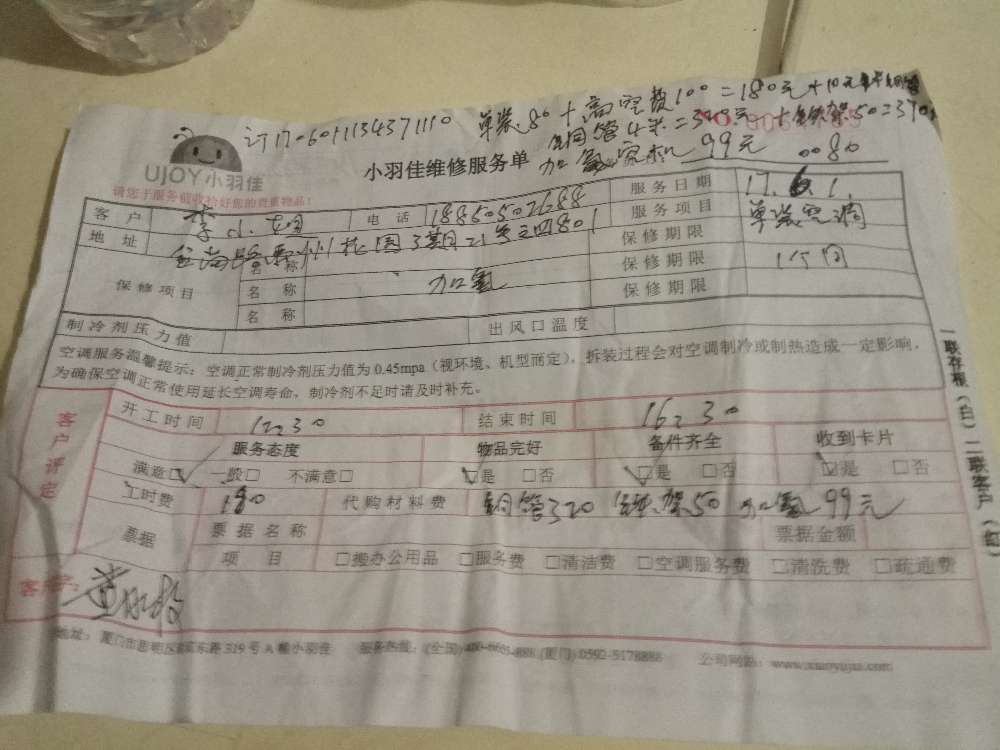 订170601134371110 单装80+高空费100=180元+10元
铜管4米=320元 +铁架50=370
加氟宾机 99元 0080
UJOY小羽佳
小羽佳维修服务单
请您于服务前收拾好您的贵重物品!
客户 李小姐 电话 18850502688 服务日期 17.6.1
地址 3期21号之四801 服务项目 单装空调
保修项目 名称 保修期限
名称 加氟 保修期限 1个月
名称 保修期限
制冷剂压力值 出风口温度
空调服务温馨提示:空调正常制冷剂压力值为 0.45mpa(视环境、机型而定)。拆装过程会对空调制冷或制热造成一定影响,
为确保空调正常使用延长空调寿命,制冷剂不足时请及时补充。
客户评定
开工时间 12:30 结束时间 16:30
服务态度 物品完好 备件齐全 收到卡片
满意☑ 一般□ 不满意□ ☑是 □否 ☑是 □否 ☑是 □否
工时费 180 代购材料费 铜管320 铁架50 加氟99元
票据 票据名称 票据金额
项目 □搬办公用品 □服务费 □清洁费 □空调服务费 □清洗费 □疏通费
客户签字:
地址:厦门市思明区 东路319号A幢小羽佳 服务热线:(全国) (厦门)0592-5178888 公司网址:www.xiaoyujia.com
一联存根(白) 二联客户(红)